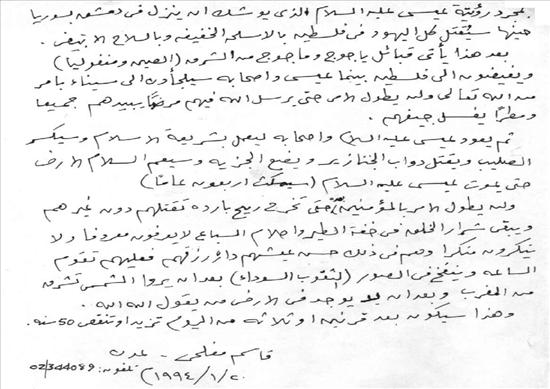 بمجرد رؤية عيسى عليه السلام الذي يوشك ان ينزل في دمشق بسوريا
حينها سيُقتل كل اليهود في فلسطين بالاسلحة الخفيفة وبالسلاح الابيض.
بعد هذا يأتي قبائل ياجوج وماجوج من الشرق (الصين ومنغوليا)
ويفيضون الى فلسطين بينما عيسى واصحابه سيلجأون الى سيناء بامر
من الله تعالى ولن يطول الامر حتى يرسل الله فيهم مرضاً يبيدهم جميعا
ومطراً يغسل جيفهم.
ثم يعود عيسى عليه السلام واصحابه ليعمل بشريعة الاسلام وسيكسر
الصليب ويقتل دواب الخنازير ويضع الجزيه وسيعم السلام الارض
حتى يموت عيسى عليه السلام (سيمكث اربعون عاماً)
ولن يطول الامر بالمؤمنين حتى تخرج ريح بارده تقتلهم دون غيرهم
ويبقى شرار الخلق في خفة الطير واحلام السباع لا يعرفون معروفا ولا
ينكرون منكرا وهم في ذلك حسن عيشهم دارٌ رزقهم فعليهم تقوم
الساعه وينفخ في الصور (الثقوب السوداء) بعد ان يروا الشمس تشرق
من المغرب وبعد ان لا يوجد في الارض من يقول الله الله.
وهذا سيكون بعد قرنين او ثلاثه من اليوم تزيد او تنقص 50 سنه.
قاسم مفلحي - عدن
تلفون: 02/344089
٢٠/١/١٩٩٤م